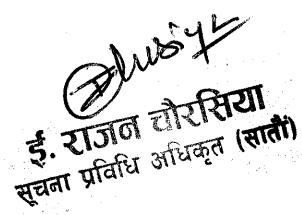 ई. राजन चौरसिया
सूचना प्रविधि अधिकृत (सातौं)